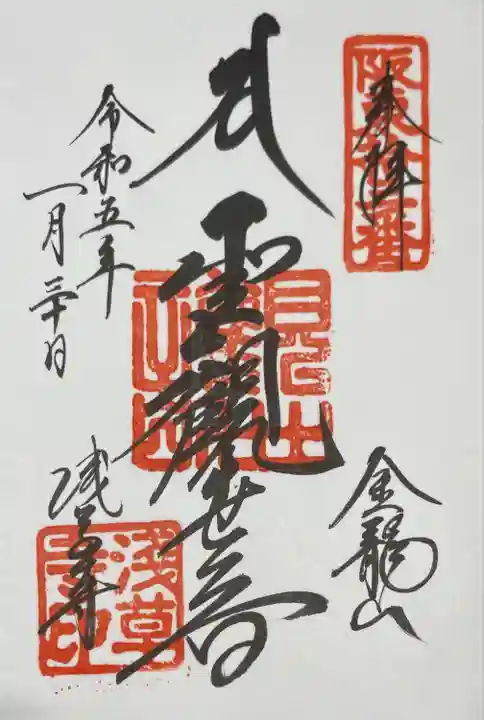 奉拝
坂東十三番
金龍山
聖観世音
浅草寺
浅草寺印
令和五年
一月三十日